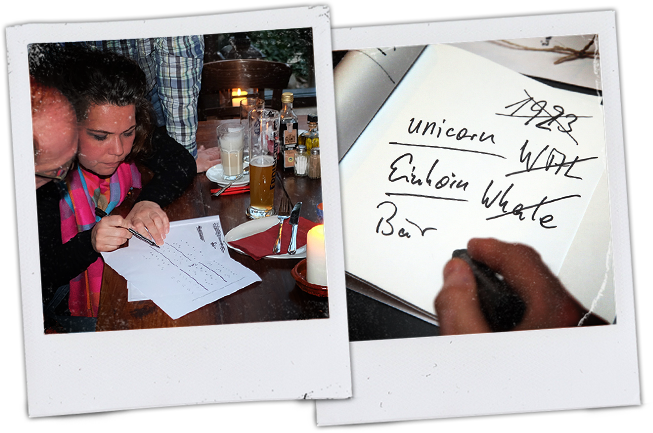 1923
unicorn WAL
Einhorn Whale
Bär